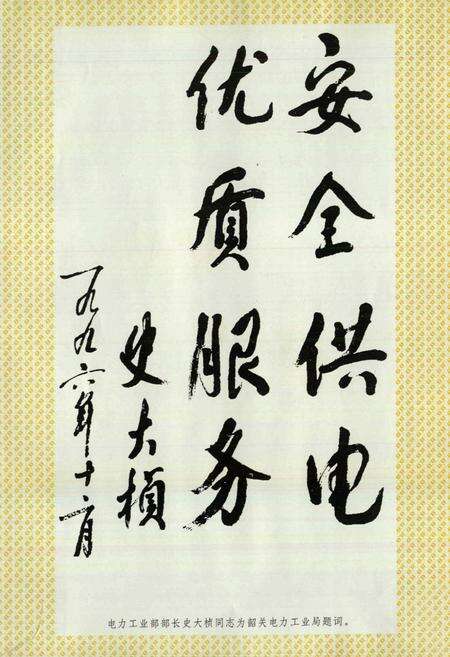 安全供电
优质服务
史大桢
一九九六年十二月
电力工业部部长史大桢同志为韶关电力工业局题词。